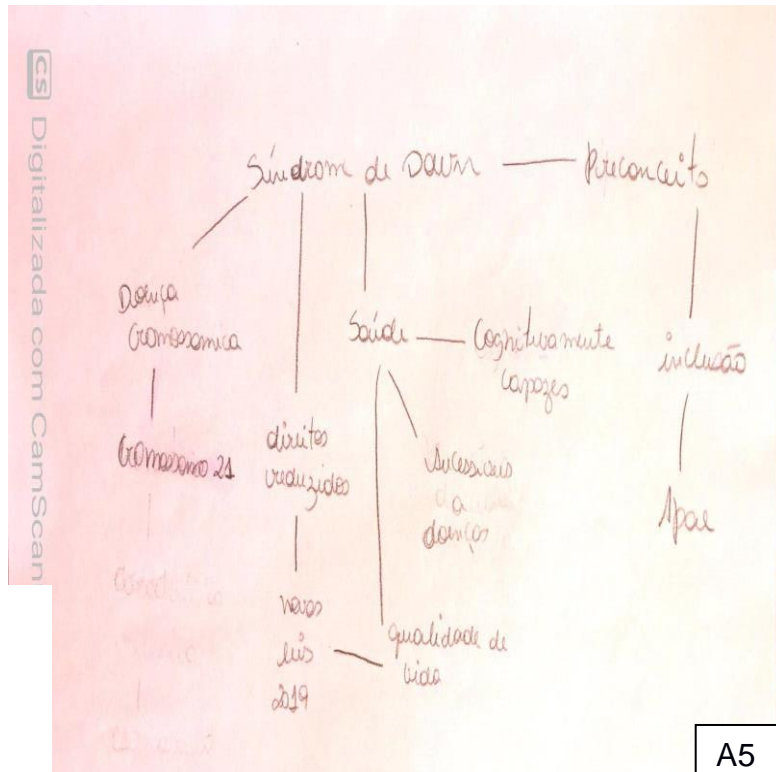 CS Digitalizada com CamScan
Síndrom de Down
Preconceito
Doença
Cromossomica
Saúde
Cognitivamente
capazes
inclusão
Cromossomo 21
direitos
reduzidos
Sucessiveis
a
doenças
Apae
novas
leis
2019
qualidade de
vida
A5